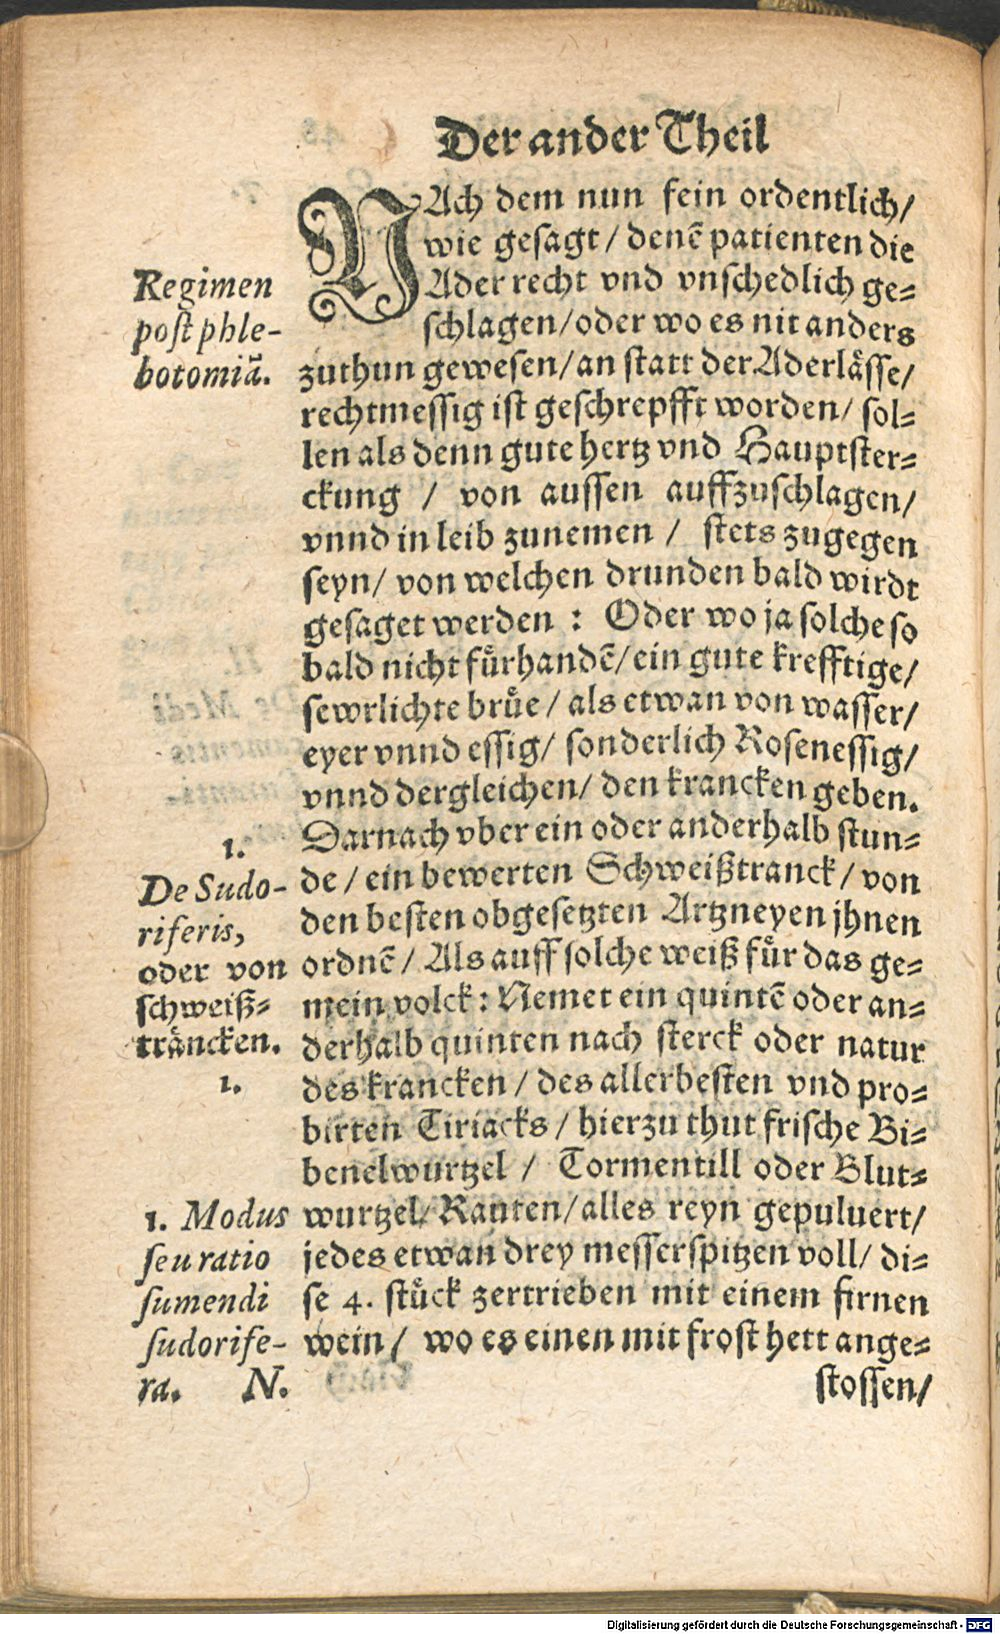 Der ander Theil
NAch dem nun fein ordentlich/
wie gesagt/ denē patienten die
Ader recht vnd vnschedlich ge=
schlagen/oder wo es nit anders
zuthun gewesen/an statt der Aderlässe/
rechtmessig ist geschrepfft worden/ sol=
len als denn gute hertz vnd Hauptster=
ckung / von aussen auffzuschlagen/
vnnd in leib zunemen / stets zugegen
seyn/ von welchen drunden bald wirdt
gesaget werden : Oder wo ja solche so
bald nicht fürhandē/ein gute krefftige/
sewrlichte brüe/ als etwan von wasser/
eyer vnnd essig/ sonderlich Rosenessig/
vnnd dergleichen/ den krancken geben.
Darnach vber ein oder anderhalb stun=
de/ein bewerten Schweißtranck/von
den besten obgesetzten Artzneyen jhnen
ordnē/ Als auff solche weiß für das ge=
mein volck: Nemet ein quintē oder an=
derhalb quinten nach sterck oder natur
des krancken/ des allerbesten vnd pro=
birten Tiriacks/ hierzu thut frische Bi=
benelwurtzel / Tormentill oder Blut=
wurtzel/ Rauten/alles reyn gepuluert/
jedes etwan drey messerspitzen voll/ di=
se 4. stück zertrieben mit einem firnen
wein/ wo es einen mit frost hett ange=
stossen/
Regimen
post phle-
botomiā.
1.
De Sudo-
riferis,
oder von
schweiß=
träncken.
1.
1. Modus
seu ratio
sumendi
sudorife-
ra. N.
Digitalisierung gefördert durch die Deutsche Forschungsgemeinschaft - DFG